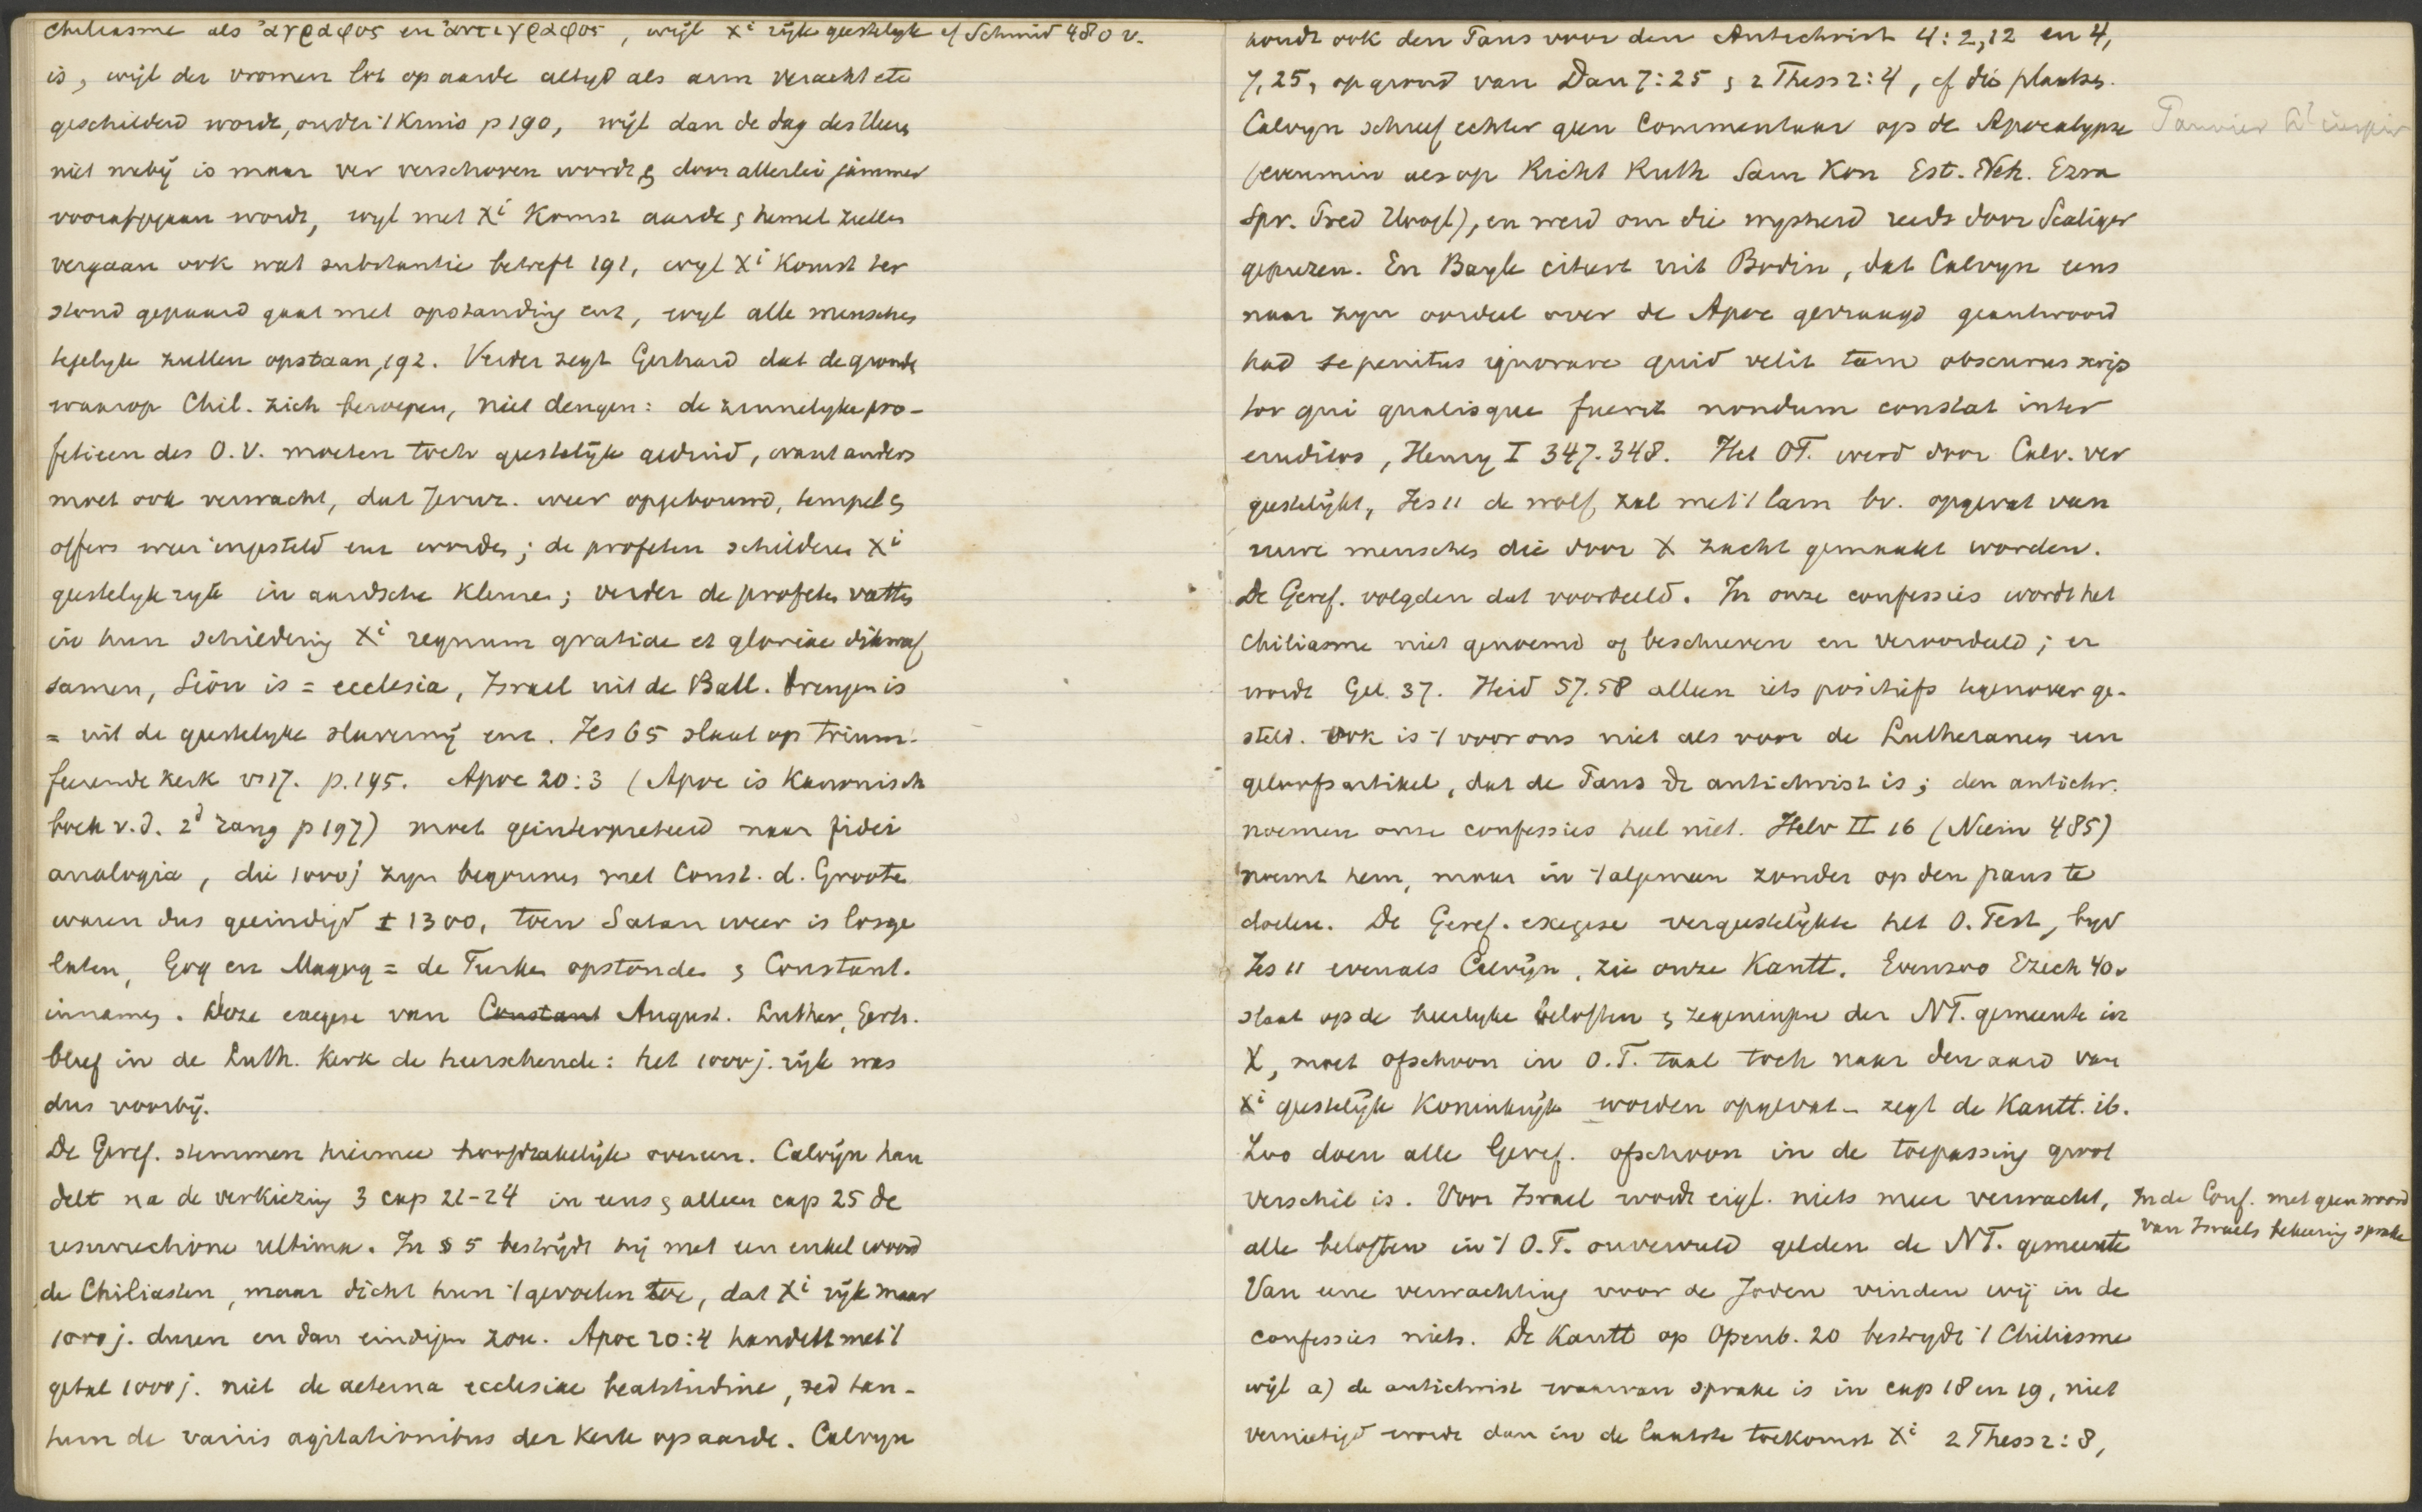 Chiliasme als ἄγραφος en ἀντιγραφος, wijl Xi rijk geestelijk cf Schmid 480 v.
is, wijl der vromen lot op aarde altijd als arm veracht etc
geschilderd wordt, onder 't Kruis p 190, wijl dan de dag des Heeren
niet nabij is maar ver verschoven wordt & door allerlei jammer
voorafgegaan wordt, wijl met Xi Komst aarde & hemel zullen
vergaan ook wat substantie betreft 191, wijl Xi Komst ter
stond gepaard gaat met opstanding enz, wijl alle menschen
tegelijk zullen opstaan, 192. Verder zegt Gerhard dat de gronden
waarop Chil. zich beroepen, niet deugen: de zinnelijke pro-
fetieen des O.V. moeten toch geestelijk geduid, want anders
moet ook verwacht, dat Jeruz. weer opgebouwd, tempel &
offers weer ingesteld enz worden; de profeten schilderen Xi
geestelijk rijk in aardsche kleuren; verder de profeten vatten
in hun schildering Xi regnum gratiae et gloriae dikwijls
samen, Sion is = ecclesia, Israel uit de Ball. brengen is
= uit de geestelijke slavernij enz. Jes 65 slaat op trium-
feerende kerk vs 17. p. 195. Apoc 20:3 (Apoc is Kanonisch
boek v.d. 2d rang p 197) moet geinterpreteerd naar fidei
analogia, die 1000 j zijn begonnen met Const. d. Groote
waren dus geeindigd ± 1300, toen Satan weer is losge
laten, Gog en Magog = de Turken opstonden & Constant.
innamen. Deze exegese van Constant August. Luther, Gerh.
bleef in de Luth. Kerk de heerschende: het 1000 j. rijk was
dus voorbij.
De Geref. stemmen hiermee hoofdzakelijk overeen. Calvijn han
delt na de verkiezing 3 cap 21-24 in eens & alleen cap 25 de
resurrectione ultima. In § 5 bestrijdt hij met een enkel woord
de Chiliasten, maar dicht hun 't gevoelen toe, dat Xi rijk maar
1000 j. duren en dan eindigen zou. Apoc 20:4 handelt met 't
getal 1000 j. niet de aeterna ecclesiae beatitudine, sed tan-
tum de variis agitationibus der Kerk op aarde. Calvijn
houdt ook den Paus voor den Antichrist 4:2,12 en 4,
7,25, op grond van Dan 7:25 & 2 Thess 2:4, cf die plaatsen.
Calvijn schreef echter geen Commentaar op de Apocalypse
(evenmin als op Richt Ruth Sam Kon Est. Neh. Ezra
Spr. Pred Hoogl), en werd om die wijsheid reeds door Scaliger
geprezen. En Bayle citeert uit Bodin, dat Calvijn eens
naar zijn oordeel over de Apoc gevraagd geantwoord
had se penitus ignorare quid velit tam obscurus scrip
tor qui qualisque fuerit nondum constat inter
eruditos, Henry I 347.348. Het OT. werd door Calv. ver
geestelijkt, Jes 11 de wolf zal met 't lam bv. opgevat van
ruwe menschen die door X zacht gemaakt worden.
De Geref. volgden dat voorbeeld. In onze confessies wordt het
chiliasme niet genoemd of beschreven en veroordeeld; er
wordt Gel. 37. Heid 57.58 alleen iets positiefs tegenover ge-
steld. Ook is 't voor ons niet als voor de Lutheranen een
geloofsartikel, dat de Paus de antichrist is; den antichr.
noemen onze confessies heel niet. Helv II 16 (Niem 485)
noemt hem, maar in 't algemeen zonder op den paus te
doelen. De Geref. exegese vergeestelijkte het O. Test, bijv
Jes 11 evenals Calvijn, zie onze Kantt. Evenzoo Ezech 40v
slaat op de heerlijke beloften & zegeningen der NT. gemeente in
X, moet ofschoon in O.T. taal toch naar den aard van
Xi geestelijk Koninkrijk worden opgevat - zegt de Kantt. ib.
Zoo doen alle Geref. ofschoon in de toepassing groot
verschil is. Voor Israel wordt eigl. niets meer verwacht, In de Conf. met geen woord
van Israels bekeering sprake
alle beloften in 't O.T. onvervuld gelden de NT. gemeente
Van eene verwachting voor de Joden vinden wij in de
confessies niets. De Kantt op Openb. 20 bestrijdt 't Chiliasme
wijl a) de antichrist waarvan sprake is in cap 18 en 19, niet
vernietigd wordt dan in de laatste toekomst Xi 2 Thess 2:8,